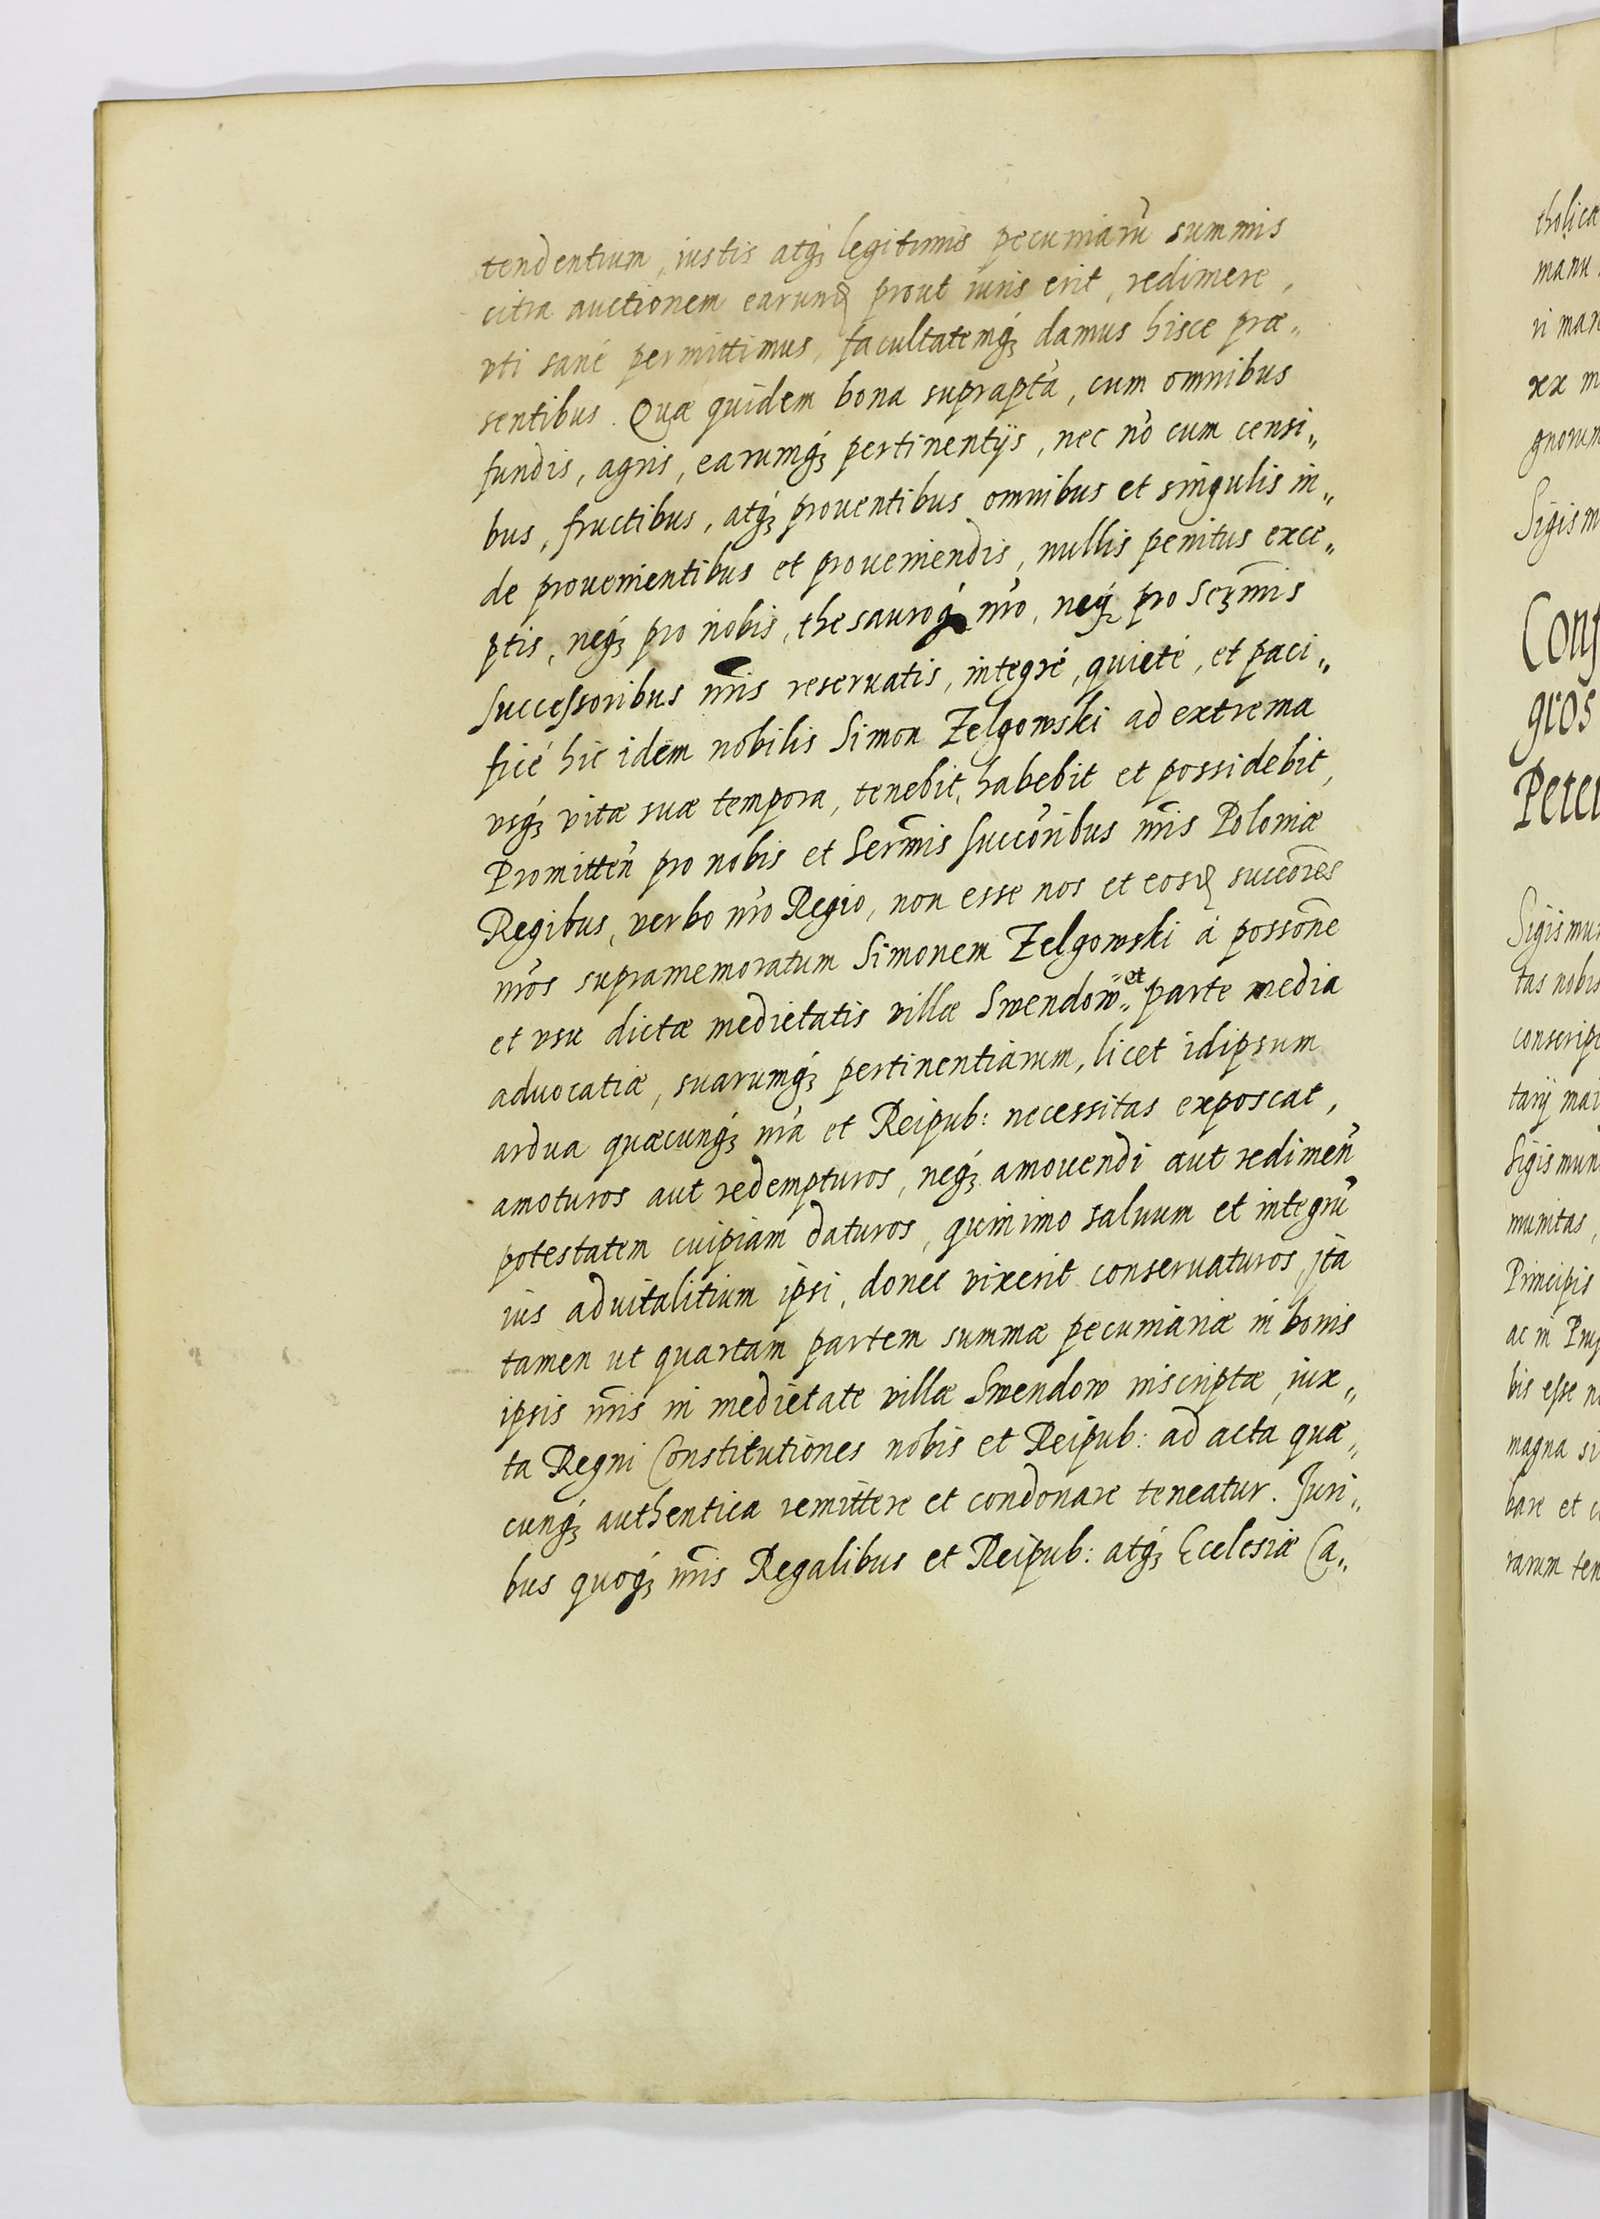 tendentium, iustis atq́ꝫ legitimis pecuniarũ summis
citra auctionem earund prout iuris erit, redimere,
vti sané permittimus, facultatemq́ꝫ damus hisce præ„
sentibus. Quæ quidem bona suprapta, cum omnibus
fundis, agris, earumq́ꝫ pertinentijs, nec nõ cum censi„
bus, fructibus, atq́ꝫ prouentibus omnibus et singulis in„
de prouenientibus et proueniendis, nullis penitus exce„
ptis, neq́ꝫ pro nobis, thesauroq́ꝫ nr̃o, neq́ꝫ pro Serm̃is
Successoribus nr̃is reseruatis, integré, quieté, et paci„
ficé hic idem nobilis Simon Zelgowski ad extrema
vsq́ꝫ vitæ suæ tempora, tenebit, habebit et possidebit,
Promitteñ pro nobis et Serm̃is Succoribus nr̃is Poloniæ
Regibus, verbo nr̃o Regio, non esse nos et eosd succores
nr̃os supramemoratum Simonem Zelgowski á possone
et vsu dictæ medietatis villæ Swendow„ et parte media
aduocatiæ, suarumq́ꝫ pertinentiarum, licet idipsum
ardua quæcunq́ꝫ nr̃a et Reipub: necessitas exposcat,
amoturos aut redempturos, neq́ꝫ amouendi aut redimeñ
potestatem cuipiam daturos, quin imo saluum et integrũ
ius aduitalitium ipsi, donec vixerit conseruaturos, jta
tamen ut quartam partem summæ pecuniariæ in bonis
ipsis nr̃is in medietate villæ Swendow inscriptæ, iux„
ta Regni Constitutiones nobis et Reipub: ad acta quæ„
cunq́ꝫ authentica remittere et condonare teneatur. Juri„
bus quoq́ꝫ nr̃is Regalibus et Reipub: atq́ꝫ Ecclesiæ Ca„
tholicæ
manu
ri man
xx m
gnorum
Sigism
Conf
gros
Peter
Sigismun
tas nobis
conscrip
tarij mai
Sigismun
munitas,
Principis
ac in Prus
bis esse n
magna si
bare et c
rarum ten